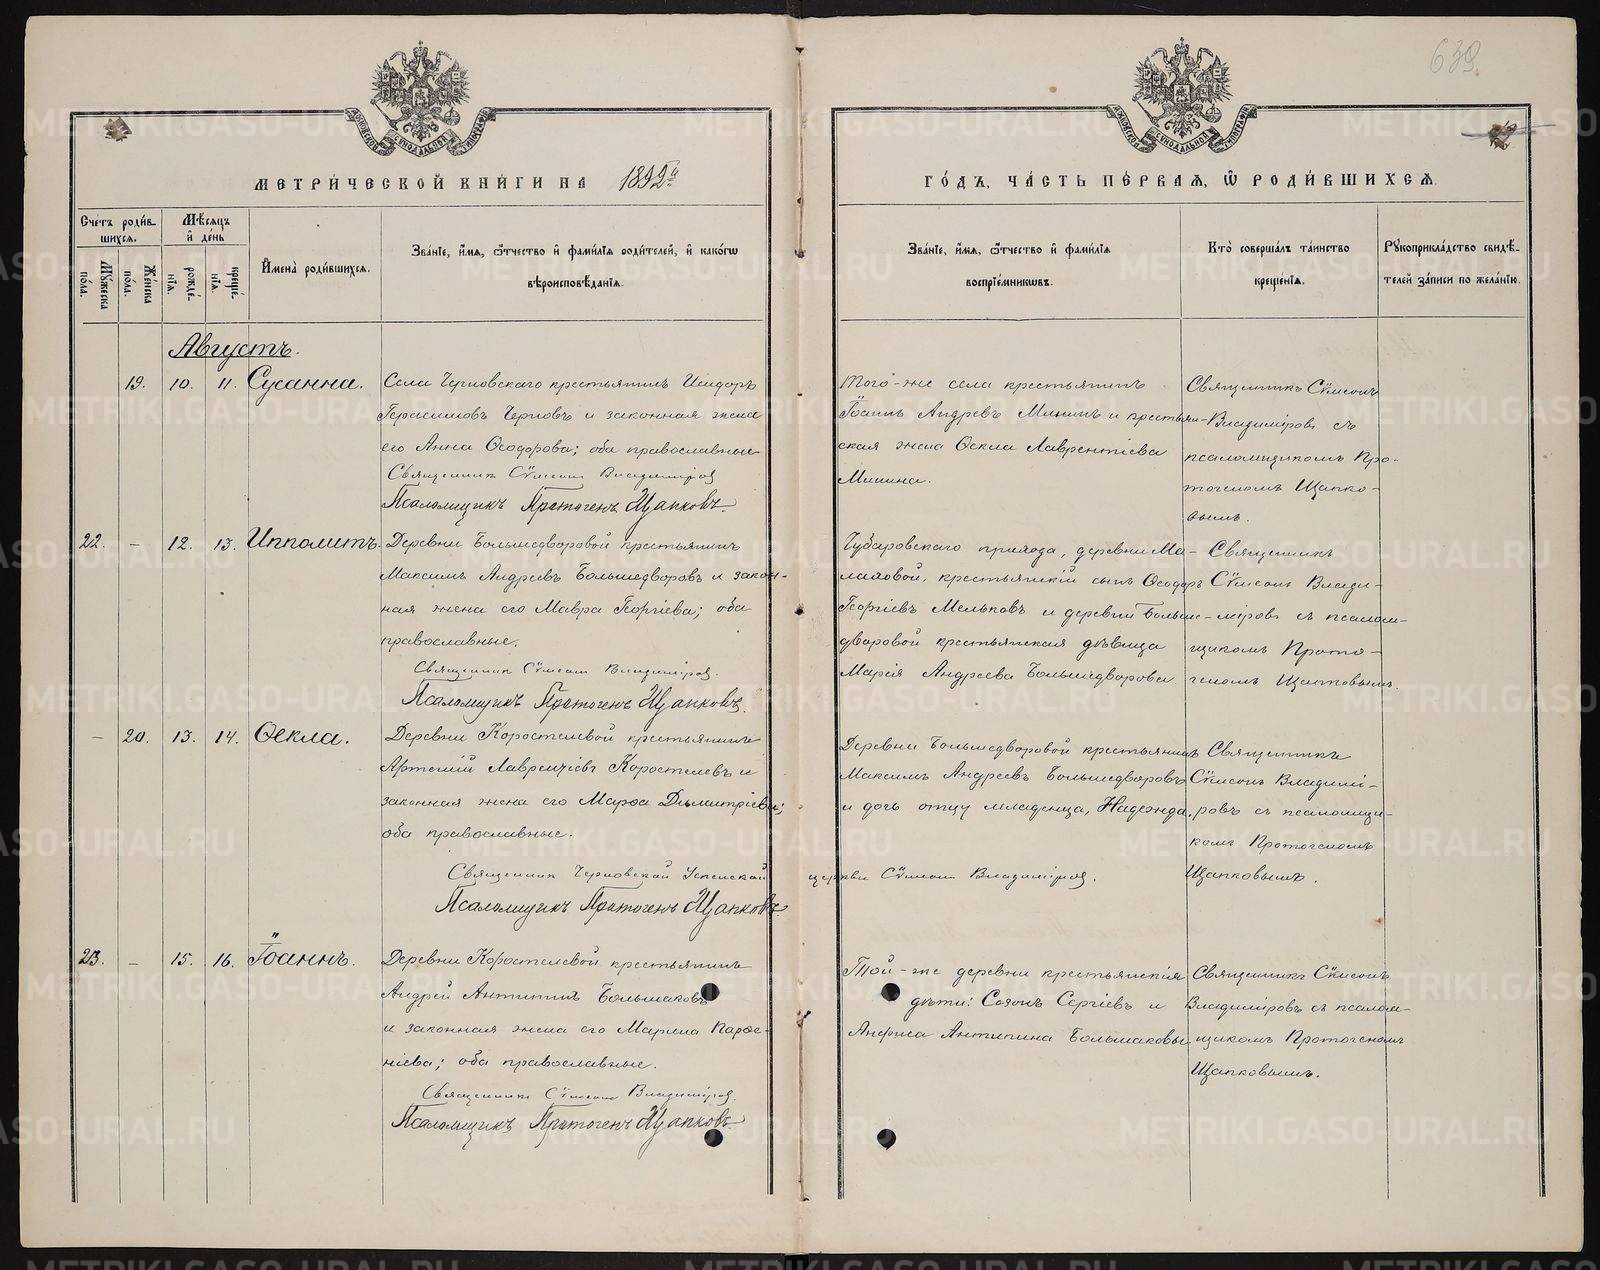 639.
МЕТРИ́ЧЕСКОЙ КНИ́ГИ НА 1892й
ГО́ДЪ, ЧА́СТЬ ПЕ́РВАѦ, Ѽ РОДИ́ВШИХСѦ
Сче́тъ роди́в-
шихсѧ.
Мѣ́сѧцъ
и҆ де́нь
Мꙋ́жеска по́ла.
Же́нска по́ла.
рожде́-
нїѧ.
креще́-
нїѧ.
И҆мена̀ роди́вшихсѧ.
Зва́нїе, и҆́мѧ, ѻ҆́тчество и҆ фами́лїѧ роди́телей, и҆ како́гѡ
вѣроисповѣ́данїѧ.
Зва́нїе, и҆́мѧ, ѻ҆́тчество и҆ фами́лїѧ
воспрїе́мникѡвъ.
Кто̀ соверша́лъ та́инство
креще́нїѧ.
Рꙋкоприкла́дство свидѣ́-
телей за́писи по жела́нїю.
Августъ.
19. 10. 11. Сусанна.
Села Черновскаго крестьянинъ Исидоръ
Герасимовъ Черновъ и законная жена
его Анна Ѳеодорова; оба православные
Священникъ Сѵмеонъ Владиміров
Псаломщикъ Протогенъ Щапковъ.
Того-же села крестьянинъ
Іоаннъ Андреевъ Мининъ и крестьян-
ская жена Ѳекла Лаврентіева
Минина.
Священникъ Сѵмеонъ
Владиміровъ съ
псаломщикомъ Про-
тогеномъ Щапко-
вымъ.
22. – 12. 13. Ипполитъ.
Деревни Большедворовой крестьянинъ
Максимъ Андреевъ Большедворовъ и закон-
ная жена его Мавра Георгіева; оба
православные.
Священник Сѵмеон Владиміров.
Псаломщикъ Протогенъ Щапковъ.
Чубаровскаго прихода, деревни Ма-
лаховой, крестьянскій сынъ Ѳеодоръ
Георгіевъ Мельковъ и деревни Больше-
дворовой крестьянская дѣвица
Марія Андреева Большедворова
Священникъ
Сѵмеонъ Влади-
міровъ съ псалом-
щикомъ Прото-
геномъ Щапковымъ.
– 20. 13. 14. Ѳекла.
Деревни Коростелевой крестьянинъ
Артемій Лаврентіевъ Коростелевъ и
законная жена его Марѳа Дмитріева;
оба православные.
Священник Черновской Успенской церкви Сѵмеон Владиміров.
Псаломщикъ Протогенъ Щапковъ
Деревни Большедворовой крестьянинъ
Максимъ Андреевъ Большедворовъ
и дочь отцу младенца, Надежда.
Священникъ
Сѵмеонъ Владимі-
ровъ съ псаломщи-
комъ Протогеномъ
Щапковымъ.
23. – 15. 16. Іоаннъ.
Деревни Коростелевой крестьянинъ
Андрей Антипинъ Большаковъ
и законная жена его Марина Парѳе-
ніева; оба православные.
Священникъ Сѵмеонъ Владиміров.
Псаломщикъ Протогенъ Щапковъ
Той-же деревни крестьянскія
дѣти: Созонъ Сергіевъ и
Анфиса Антипина Большаковы
Священникъ Сѵмеонъ
Владиміровъ съ псалом-
щикомъ Протогеномъ
Щапковымъ.
METRIKI.GASO-URAL.RU